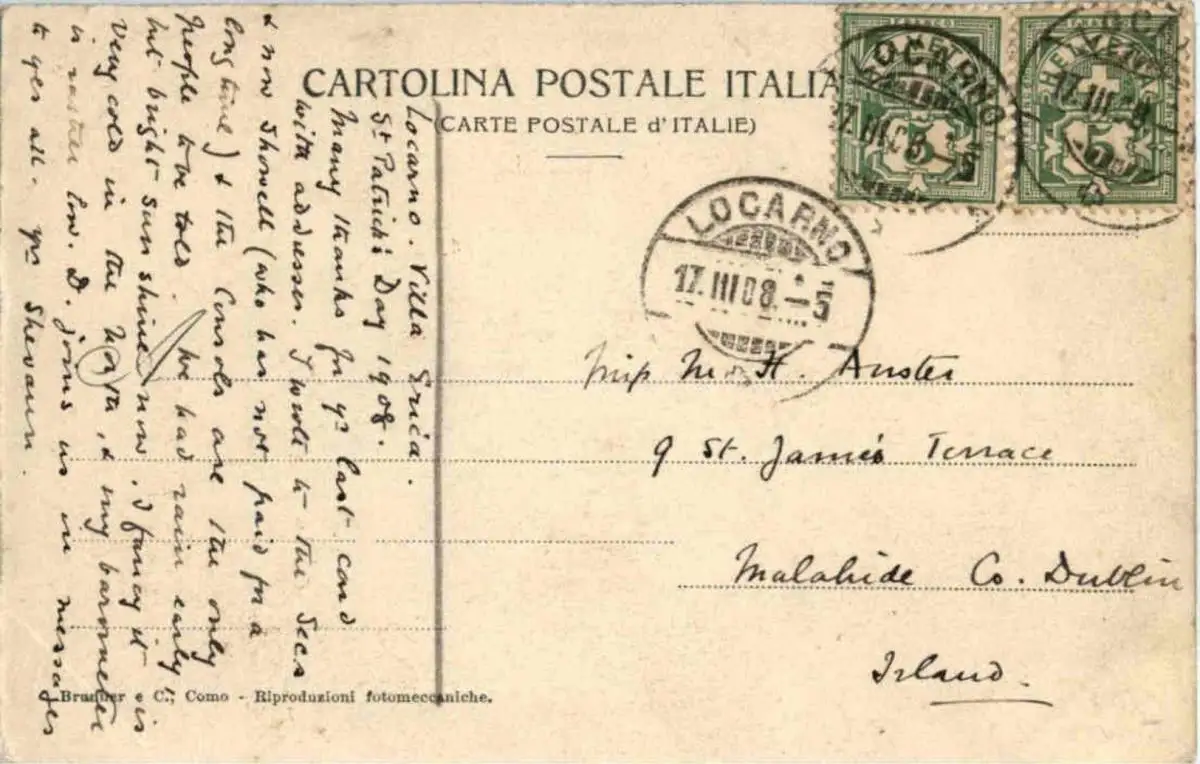 CARTOLINA POSTALE ITALIA
(CARTE POSTALE d'ITALIE)
HELVETIA
FRANCO
5
HELVETIA
FRANCO
5
LOCARNO
17.III.08.-5
LOCARNO
17.III.08.-5
LOCARNO
17.III.08
Locarno. Villa Erica.
St Patrick's Day 1908.
Many thanks for yr last card
with addresses. I wrote to the Secs
& now Showell (who has not paid for a
long time) & the Consols are the only
people to be told. We had rain early
but bright sunshine now, I fancy it is
very cold in the North, & my barometer
is rather low. D. joins us in messages
to yes all. yrs Shevaun.
Miss M. H. Anster
9 St. James's Terrace
Malahide Co. Dublin
Irland.
Brunner e C., Como - Riproduzioni fotomeccaniche.